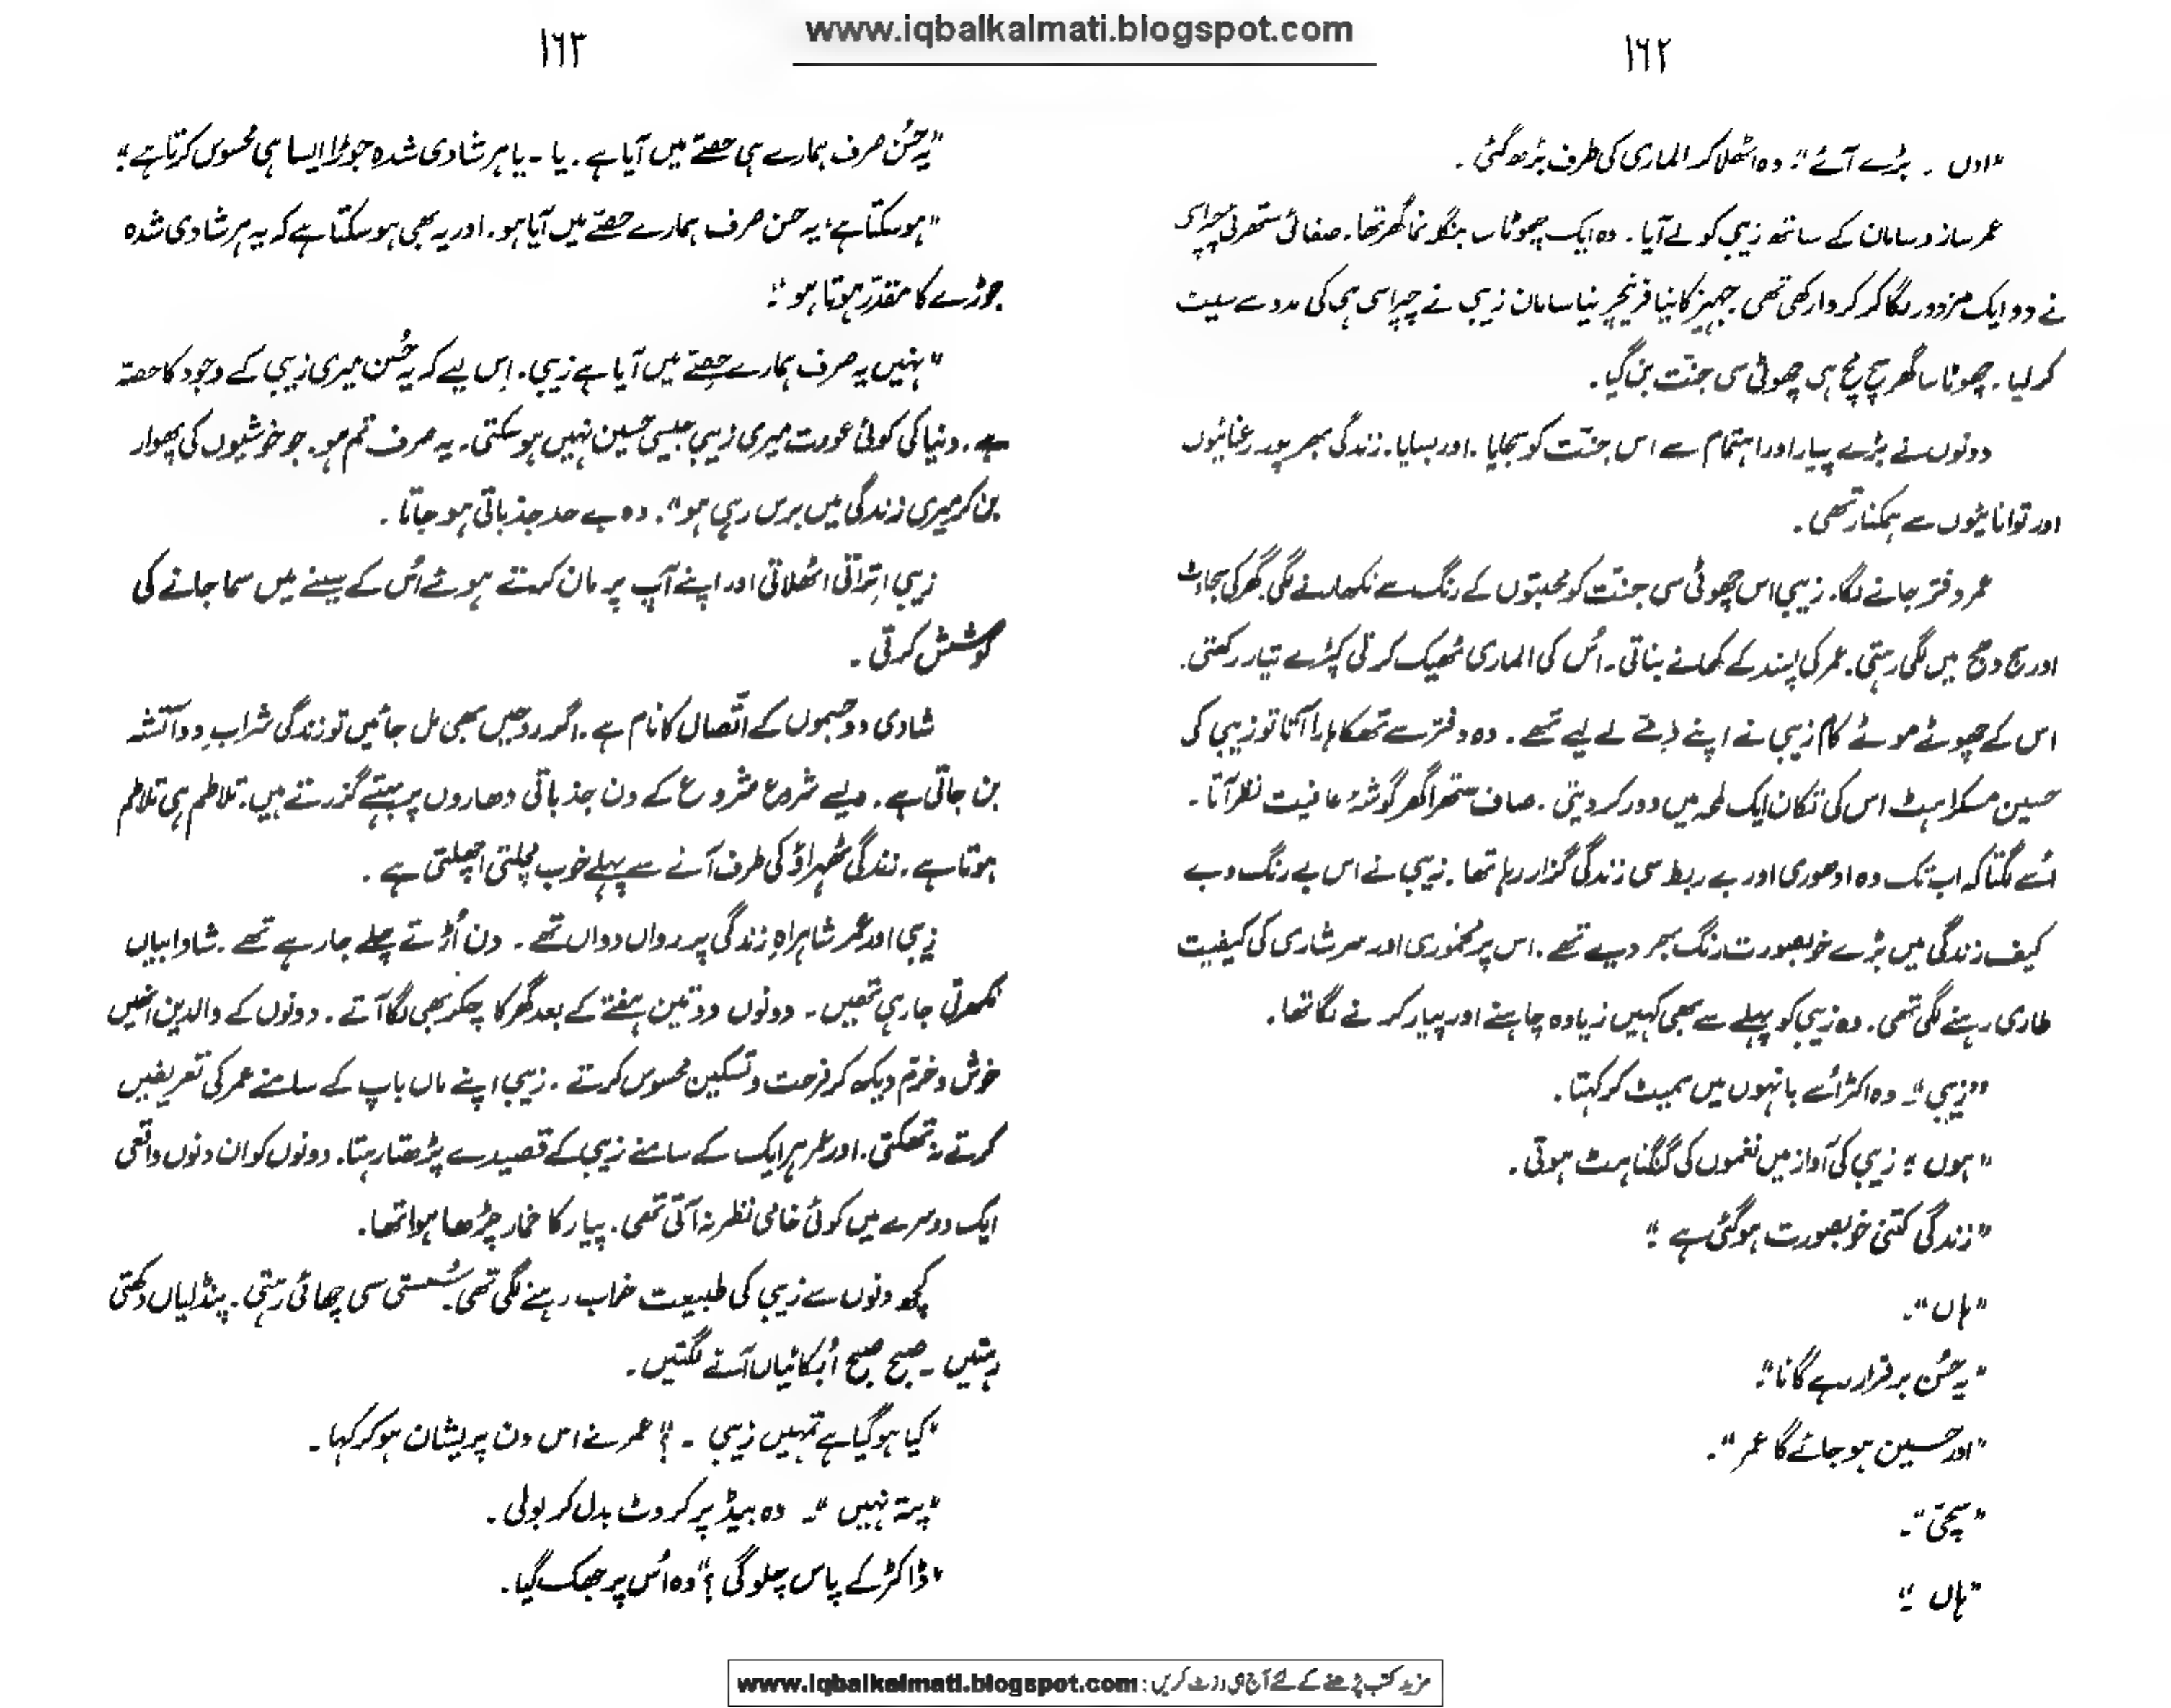 www.iqbalkalmati.blogspot.com
۱۶۲
"اوں ۔ بڑے آئے"۔ وہ اٹھلا کر الماری کی طرف بڑھ گئی ۔
عمر ساز و سامان کے ساتھ زیبی کو لے آیا ۔ وہ ایک چھوٹا سا بنگلو نما گھر تھا۔ صفائی ستھرائی چپراسی
نے دو ایک مزدور لگا کر کروا رکھی تھی۔ جہیز کا نیا فرنیچر نیا سامان زیبی نے چپراسی ہی کی مدد سے سیٹ
کر لیا ۔ چھوٹا سا گھر سچ مچ ہی چھوٹی سی جنت بن گیا ۔
دونوں نے بڑے پیار اور اہتمام سے اس جنّت کو سجایا ۔ اور بسایا ۔ زندگی بھرپور رعنائیوں
اور توانائیوں سے ہمکنار تھی ۔
عمر دفتر جانے لگا۔ زیبی اس چھوٹی سی جنّت کو محبتوں کے رنگ سے نکھارنے لگی۔ گھر کی سجاوٹ
اور سج دھج میں لگی رہتی۔ عمر کی پسند کے کھانے بناتی ۔ اُس کی الماری ٹھیک کرتی کپڑے تیار رکھتی۔
اس کے چھوٹے موٹے کام زیبی نے اپنے ذمّے لے لیے تھے ۔ وہ دفتر سے تھکا ہارا آتا تو زیبی کی
حسین مسکراہٹ اس کی تکان ایک لمحہ میں دور کر دیتی ۔ صاف ستھرا گھر گوشۂ عافیت نظر آتا ۔
اُسے لگتا کہ اب تک وہ ادھوری اور بے ربط سی زندگی گزار رہا تھا ۔ زیبی نے اس بے رنگ و بے
کیف زندگی میں بڑے خوبصورت رنگ بھر دیے تھے ۔ اس پر مخموری اور سرشاری کی کیفیت
طاری رہنے لگی تھی ۔ وہ زیبی کو پہلے سے بھی کہیں زیادہ چاہنے اور پیار کرنے لگا تھا ۔
"زیبی"۔ وہ اکثر اُسے بانہوں میں سمیٹ کر کہتا ۔
"ہوں"؛ زیبی کی آواز میں نغموں کی گنگناہٹ ہوتی ۔
"زندگی کتنی خوبصورت ہو گئی ہے"۔
"ہاں"۔
"یہ حُسن برقرار رہے گا نا"۔
"اور حسین ہو جائے گا عمر"۔
"سچّی"۔
"ہاں"۔
۱۶۳
"یہ حُسن صرف ہمارے ہی حصّے میں آیا ہے ۔ یا ۔ یا ہر شادی شدہ جوڑا ایسا ہی محسوس کرتا ہے"۔
"ہو سکتا ہے یہ حسن صرف ہمارے حصّے میں آیا ہو ۔ اور یہ بھی ہو سکتا ہے کہ یہ ہر شادی شدہ
جوڑے کا مقدّر ہوتا ہو"۔
"نہیں یہ صرف ہمارے حِصّے میں آیا ہے زیبی ۔ اِس لیے کہ یہ حُسن میری زیبی کے وجود کا حصّہ
ہے ۔ دنیا کی کوئی عورت میری زیبی جیسی حسین نہیں ہو سکتی ۔ یہ صرف تم ہو ۔ جو خوشیوں کی پھوار
بن کر میری زندگی میں برس رہی ہو"۔ وہ بے حد جذباتی ہو جاتا ۔
زیبی اِتراتی اٹھلاتی اور اپنے آپ پر مان کرتے ہوئے اُس کے سینے میں سما جانے کی
کوشش کرتی ۔
شادی دو جسموں کے اتّصال کا نام ہے ۔ اگر روحیں بھی مل جائیں تو زندگی شرابِ دو آتشہ
بن جاتی ہے ۔ ویسے شروع شروع کے دن جذباتی دھاروں پر بہتے گزرتے ہیں ۔ تلاطم ہی تلاطم
ہوتا ہے ۔ زندگی ٹھہراؤ کی طرف آنے سے پہلے خوب مچلتی اچھلتی ہے ۔
زیبی اور عمر شاہراہِ زندگی پر رواں دواں تھے ۔ دن اُڑتے چلے جا رہے تھے ۔ شادابیاں
نکھرتی جا رہی تھیں ۔ دونوں دو تین ہفتے کے بعد گھر کا چکر بھی لگا آتے ۔ دونوں کے والدین انہیں
خوش و خرّم دیکھ کر فرحت و تسکین محسوس کرتے ۔ زیبی اپنے ماں باپ کے سامنے عمر کی تعریفیں
کرتے نہ تھکتی ۔ اور عمر ہر ایک کے سامنے زیبی کے قصیدے پڑھتا رہتا ۔ دونوں کو ان دنوں واقعی
ایک دوسرے میں کوئی خامی نظر نہ آتی تھی ۔ پیار کا خمار چڑھا ہوا تھا ۔
کچھ دنوں سے زیبی کی طبیعت خراب رہنے لگی تھی۔ سُستی سی چھائی رہتی ۔ پنڈلیاں دکھتی
رہتیں ۔ صبح صبح اُبکائیاں آنے لگتیں ۔
"کیا ہو گیا ہے تمہیں زیبی ۔ ؟" عمر نے اس دن پریشان ہو کر کہا ۔
"پتہ نہیں"۔ وہ بیڈ پر کروٹ بدل کر بولی ۔
"ڈاکٹر کے پاس چلو گی ؟" وہ اُس پر جھک گیا ۔
مزید کتب پڑھنے کے لئے آج ہی وزٹ کریں : www.iqbalkalmati.blogspot.com